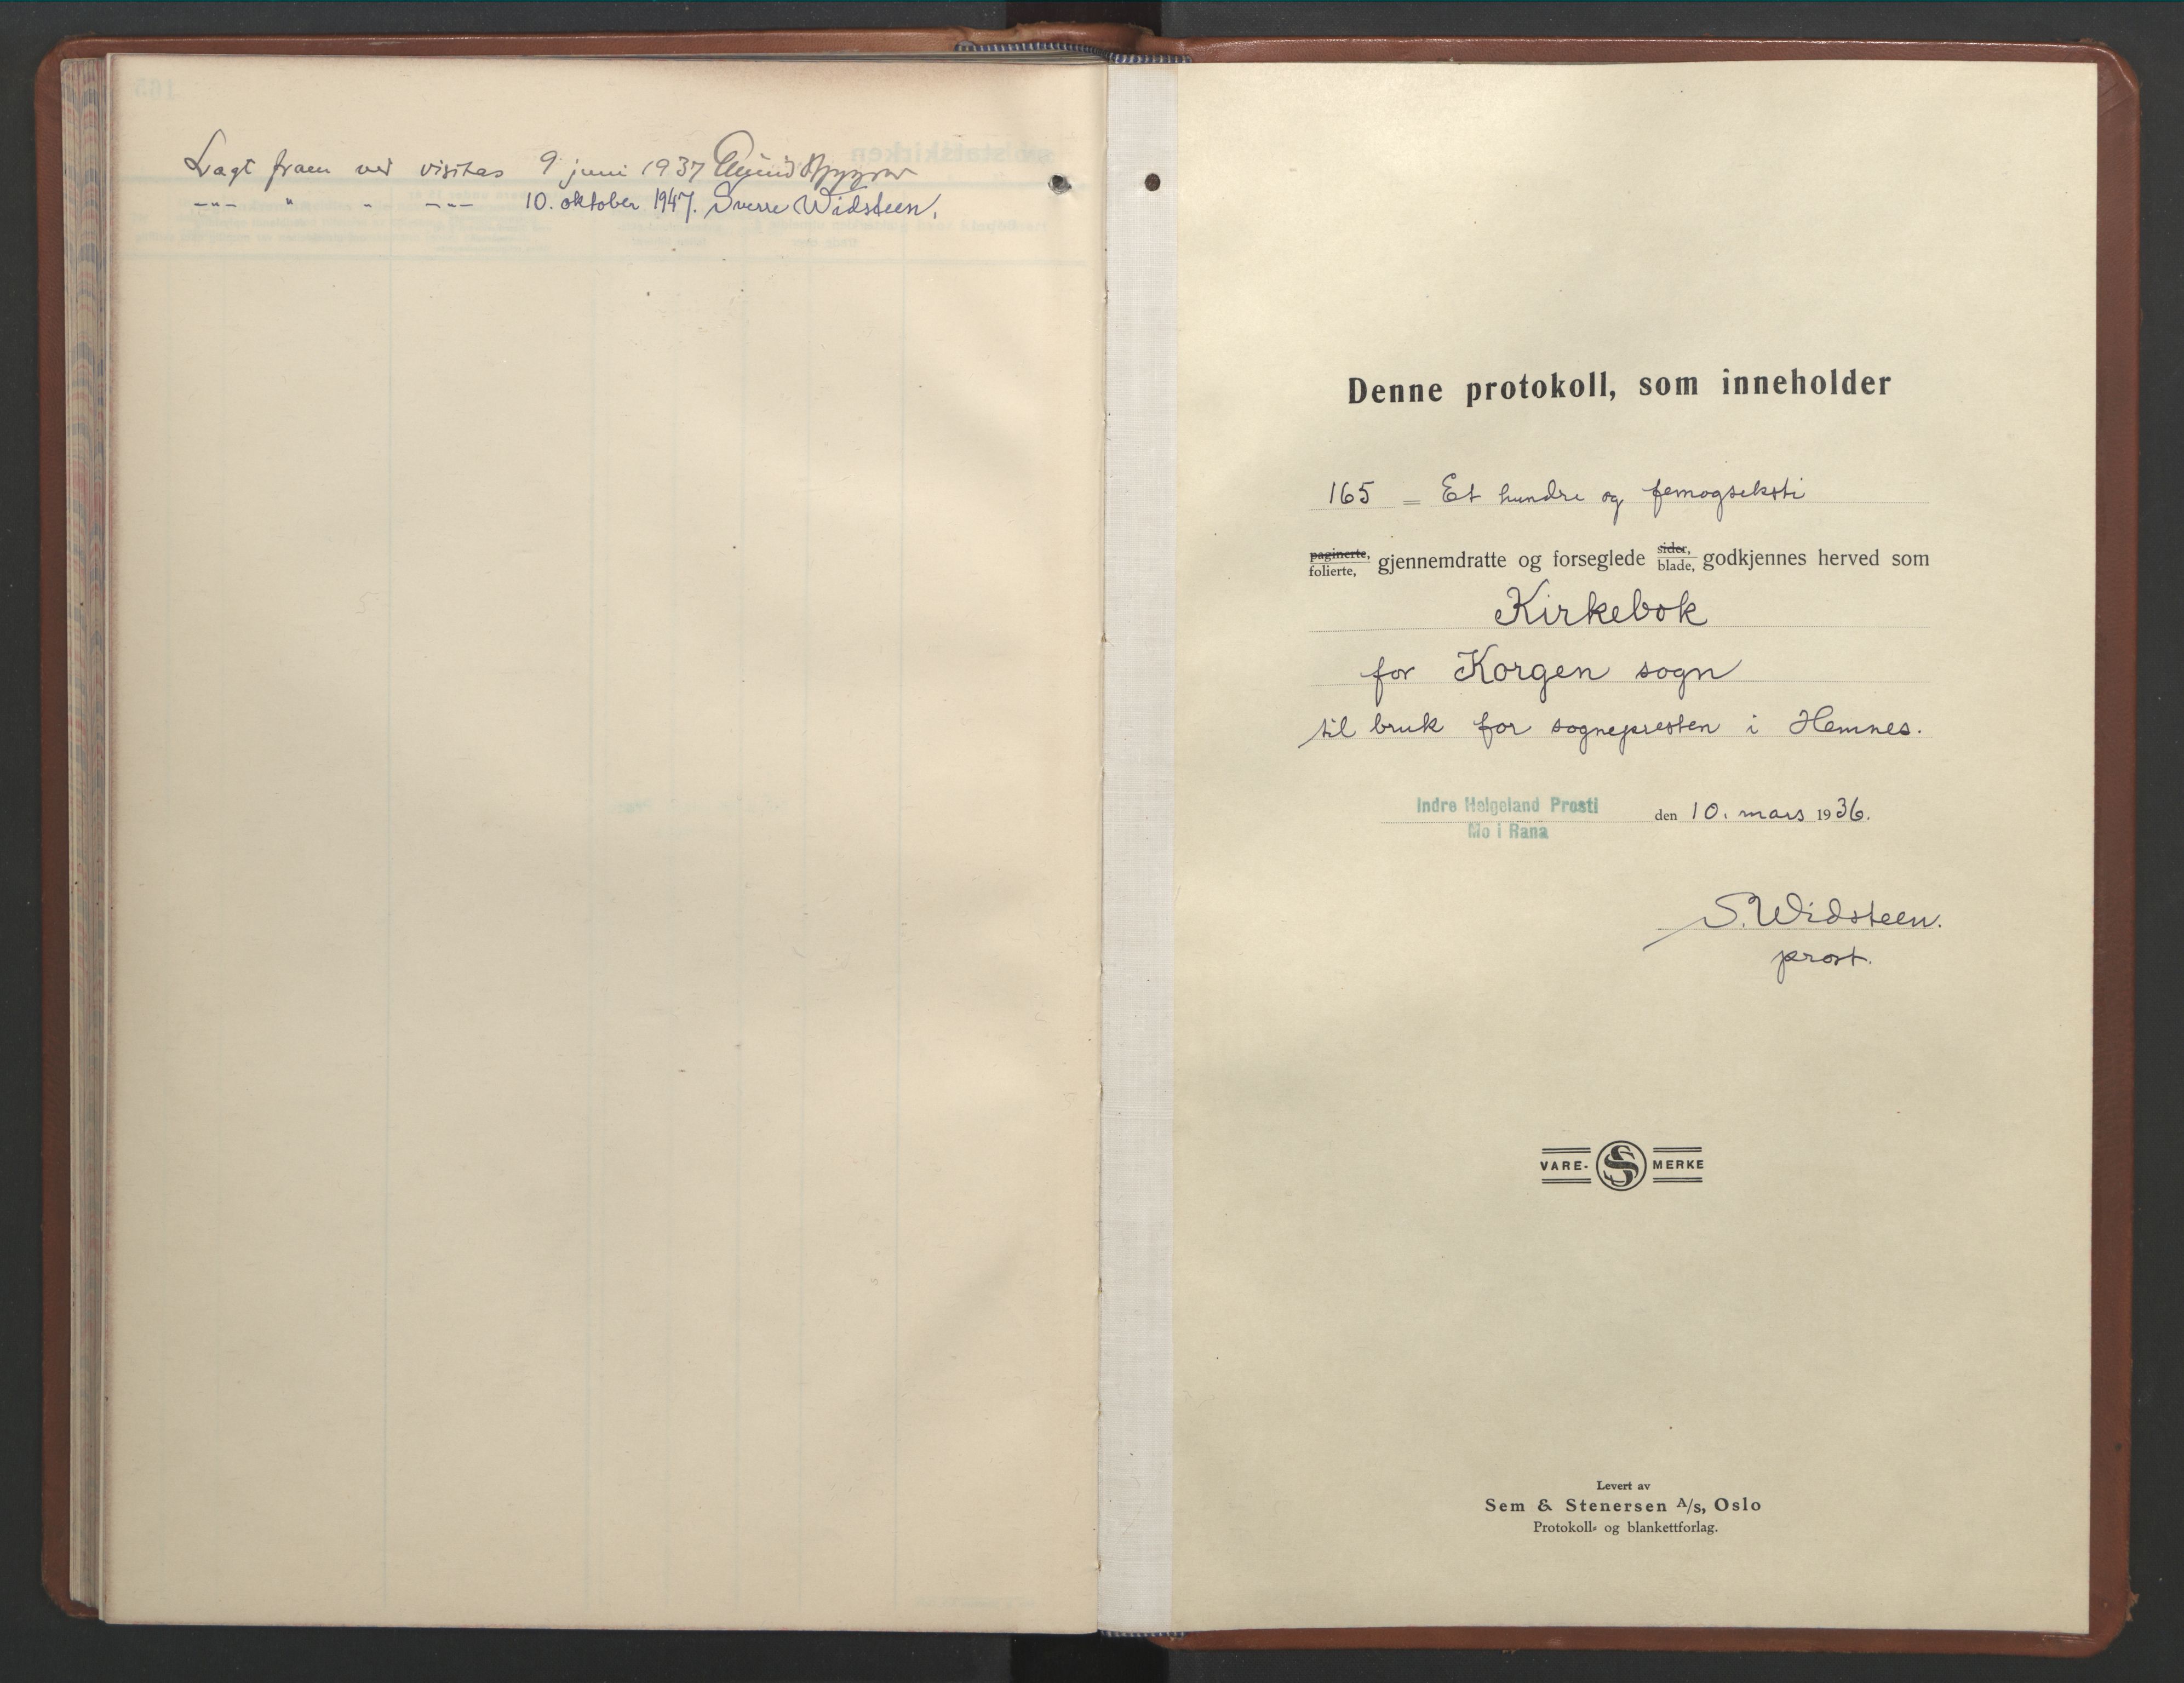 Lagt fram ved visitas 9 juni 1937
-"- " " -"- 10. oktober 1947. Sverre Widsteen.
Denne protokoll, som inneholder
165 = Et hundre og femogseksti
paginerte,
folierte, gjennemdratte og forseglede sider,
blade, godkjennes herved som
Kirkebok
for Korgen sogn
til bruk for sognepresten i Hemnes.
Indre Helgeland Prosti
Mo i Rana
den 10. mars 1936.
S. Widsteen.
prost.
VARE- S MERKE
Levert av
Sem & Stenersen A/s, Oslo
Protokoll- og blankettforlag.